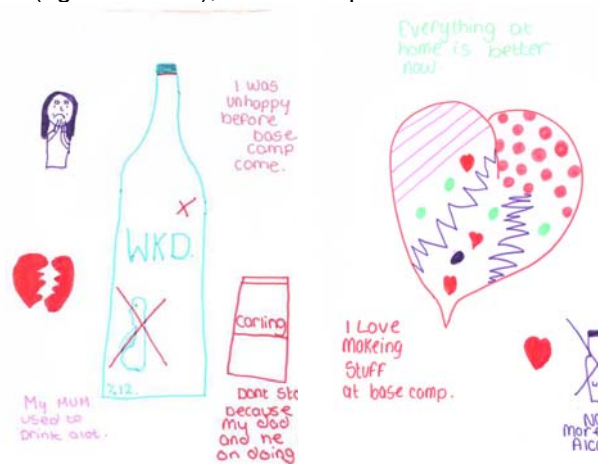 I was
unhappy
before
base
camp
come.
WKD.
Carling
%12.
My MUM
used to
Drink alot.
Dont
because
my dad
and he
on doing
Everything at
home is better
now.
I Love
Makeing
Stuff
at base camp.
more